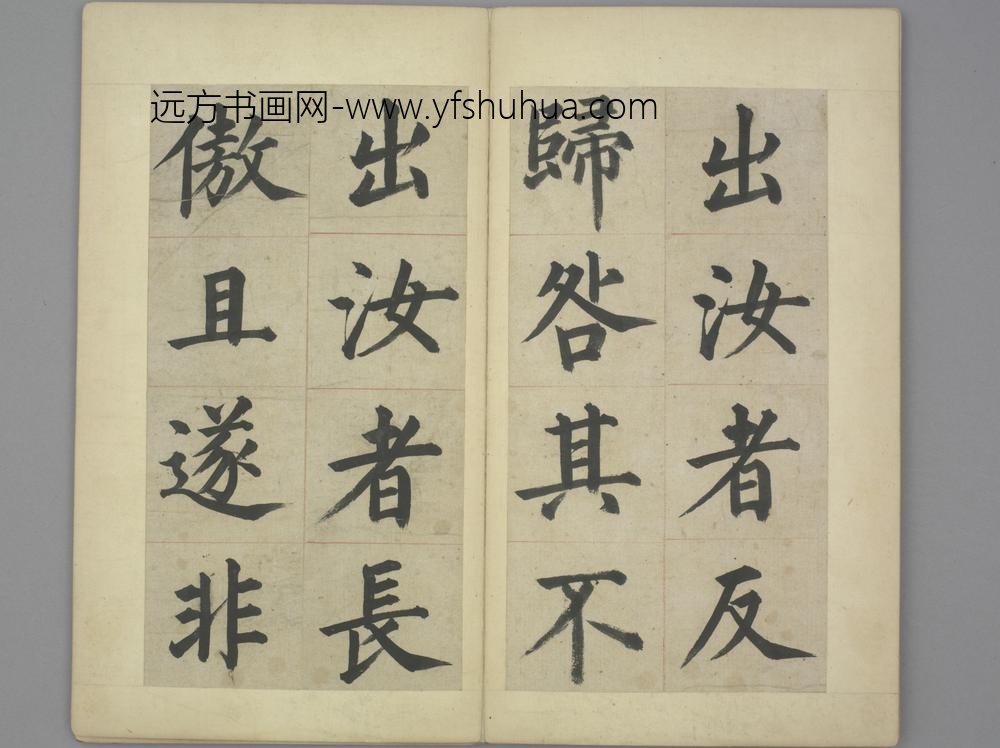 远方书画网-www.yfshuhua.com
出汝者反
歸咎其不
出汝者長
傲且遂非